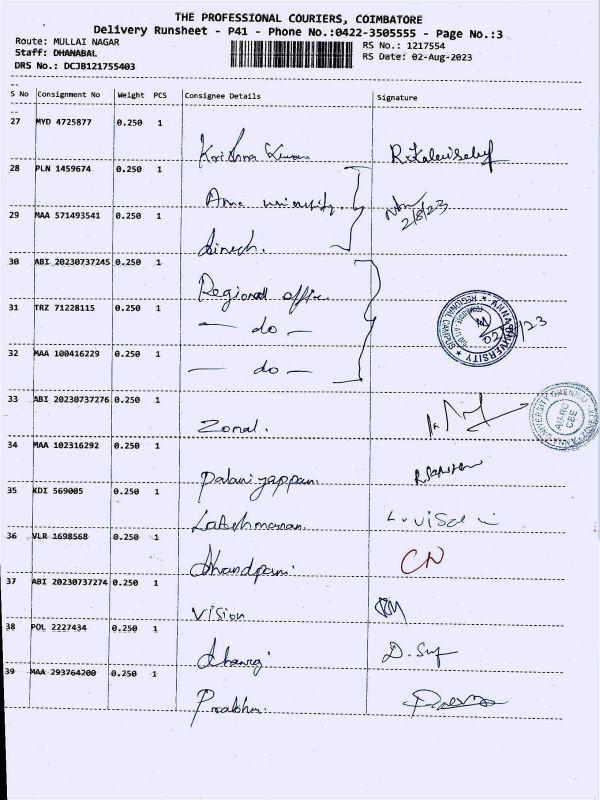 THE PROFESSIONAL COURIERS, COIMBATORE
Delivery Runsheet - P41 - Phone No.:0422-3505555 - Page No.:3
Route: MULLAI NAGAR RS No.: 1217554
Staff: DHANABAL RS Date: 02-Aug-2023
DRS No.: DCJB121755403
S No Consignment No Weight PCS Consignee Details Signature
27 MYD 4725877 0.250 1
Krishna Kumar
28 PLN 1459674 0.250 1
Anna university
2/8/23
29 MAA 571493541 0.250 1
dinesh.
30 ABI 20230737245 0.250 1
Regional office
31 TRZ 71228115 0.250 1
— do —
32 MAA 100416229 0.250 1
— do —
33 ABI 20230737276 0.250 1
Zonal.
34 MAA 102316292 0.250 1
Palaniyappan
35 KDI 569005 0.250 1
Lakshmanan
36 VLR 1698568 0.250 1
dhandpani
CN
37 ABI 20230737274 0.250 1
Vision
38 POL 2227434 0.250 1
39 MAA 293764200 0.250 1
Prabhu.